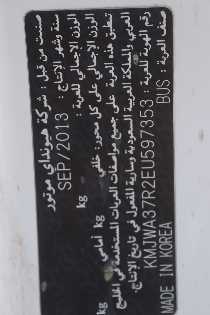 صنعت من قبل : شركة هيونداي موتور
سنة وشهر الإنتاج : SEP/2013
الوزن الإجمالي للعربة : kg
الوزن الإجمالي على كل محور: خلفي kg أمامي kg
تطبق هذه العربة على جميع مواصفات العربات المستخدمة في الخليج
العربي والمملكة العربية السعودية وسارية المفعول في تاريخ الإنتاج.
رقم الهوية للعربة : KMJWA37R2EU597353
صنف العربة : BUS MADE IN KOREA